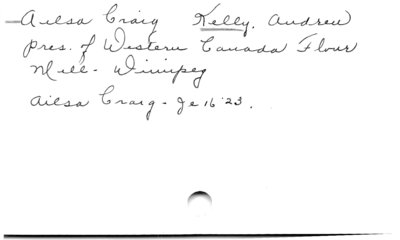 Ailsa Craig Kelly, Andrew
pres. of Western Canada Flour
Mill - Winnipeg
Ailsa Craig - Je 16 '23.